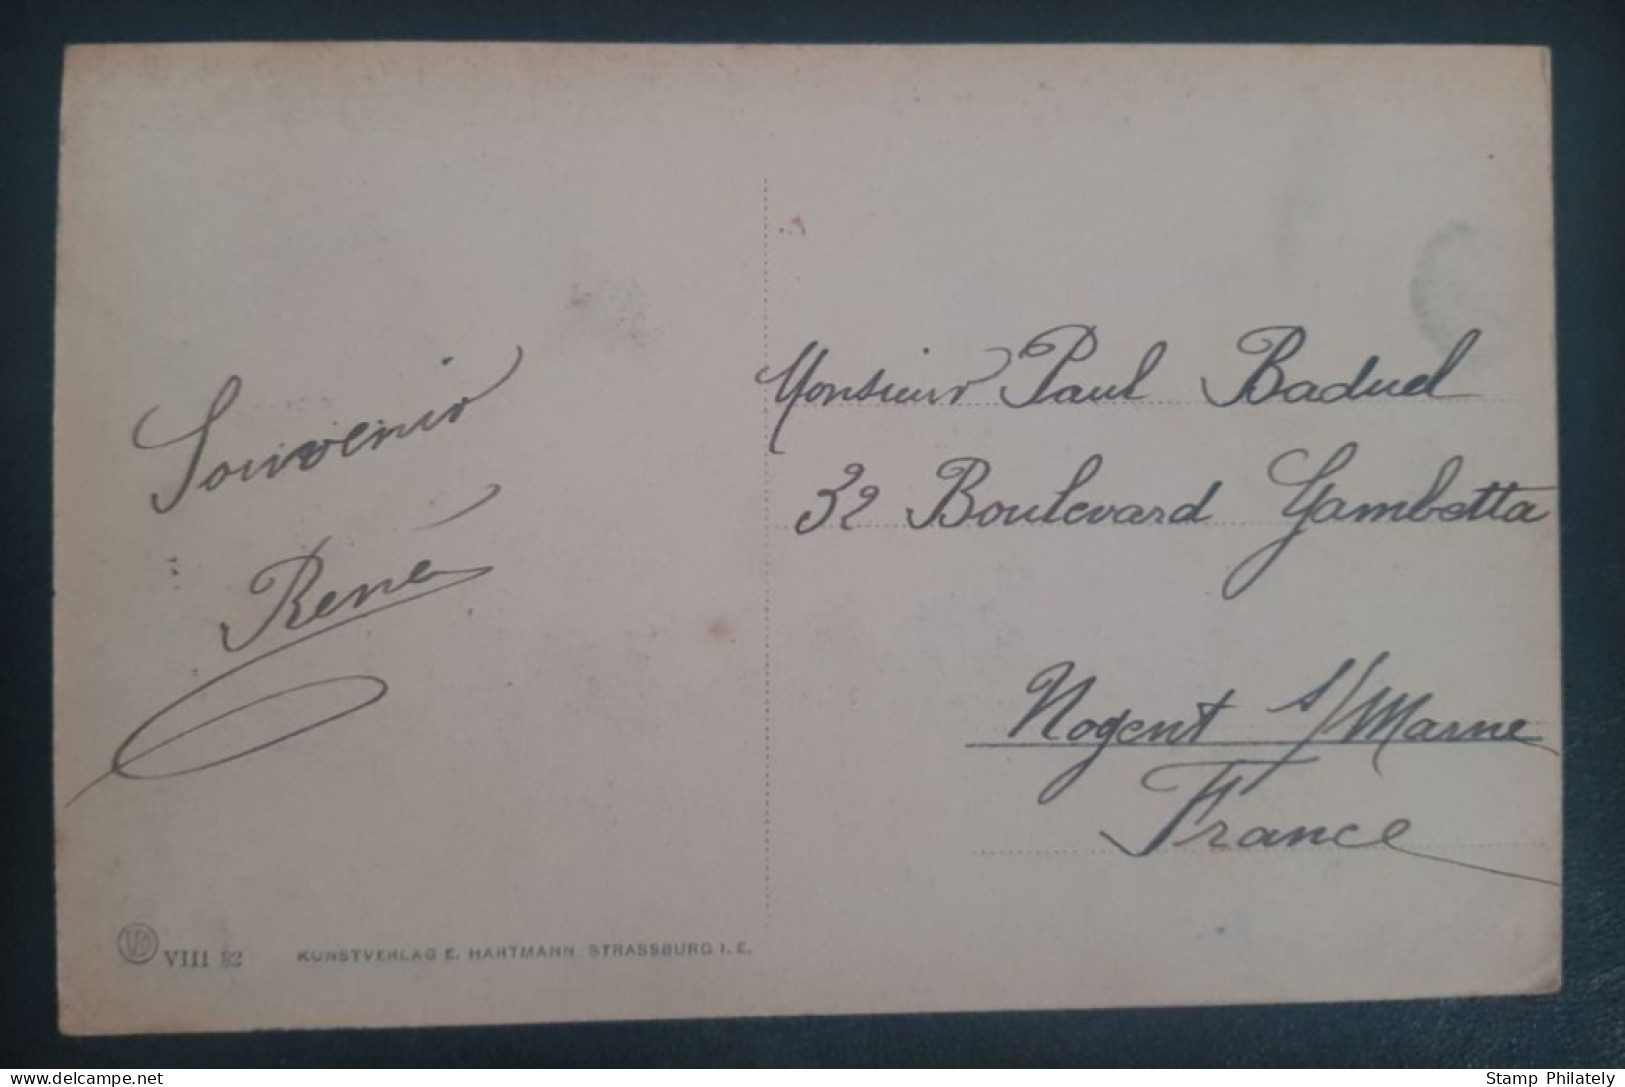 Souvenir
René
Monsieur Paul Baduel
32 Boulevard Gambetta
Nogent s/Marne
France
VIII 82
KUNSTVERLAG E. HARTMANN STRASSBURG I. E.
delcampe.net
Stamp Philately